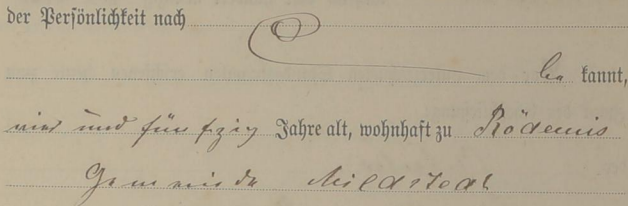 der Persönlichkeit nach
be kannt,
vier und fünfzig Jahre alt, wohnhaft zu Rödemis
Gemeinde Mildstedt